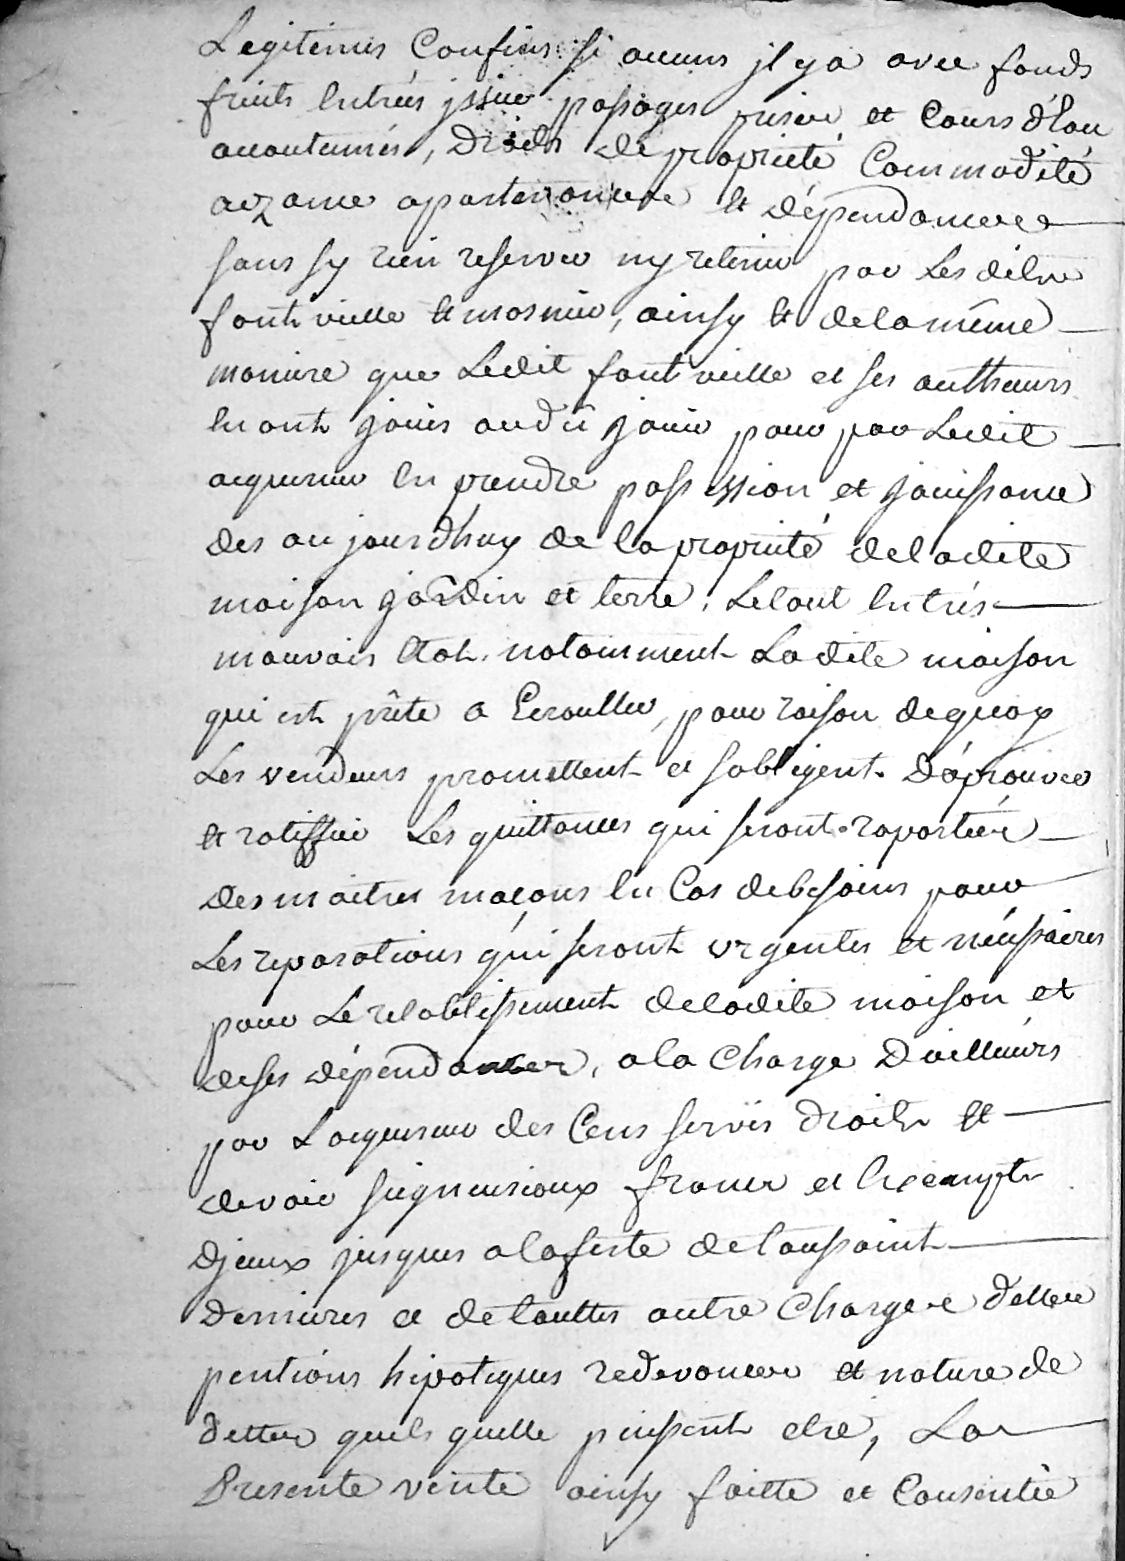 Legitimes Confins si aucuns jl y a avec fonds
fruits Entrées jssues passages prise et Cours d'Eau
acoutumés, Droits de propriété Commodité
aizance apartenances et dépendances
sans sy rien reserver ny retenir par Les dits
fontvielle et mosnier, ainsy et de la même
maniere que Ledit fontvieille et ses autheurs
En ont jouis ou dû jouir pour par Ledit
aquereur En prendre possession et jouissance
des aujourdhuy de la propriété de ladite
maison jardin et terre, Le tout En trés
mauvais Etat, notamment Ladite maison
qui est prête a Ecrouller, pour raison de quoy
Les vendeurs promettent et sobligent D'áprouver
et ratiffier Les quittances qui seront raportées
des maitres maçons En Cas de besoins pour
Les reparations qui seront urgentes et nécessaires
pour Le retablissement de ladite maison et
de ses dépendances, a la Charge D'ailleurs
par L'aquereur des Cens servis droits et
devoir seigneuriaux francs et Exempts
Djceux jusques a la feste de toussaint
Dernieres et de touttes autre Charges dettes
pentions hipoteques redevances et nature de
dettes quels quelle puissent etre, La
Presente vente ainsy faitte et Consentie